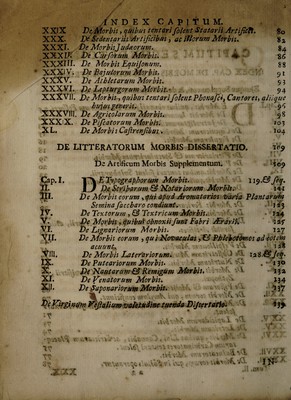 INDEX CAPITUM.
XXIX De Morbis, quibus tentari solent Statarii Artifices. 80
XXX. De Sedentariis Artificibus, ac illorum Morbis. 82
XXXI. De Morbis Judæorum. 84
XXXII. De Cursorum Morbis. 86
XXXIII. De Morbis Equisonum. 88
XXXIV. De Bajulorum Morbis. 91
XXXV. De Athletarum Morbis. 93
XXXVI. De Morbis. 94
XXXVII. De Morbis, quibus tentari solent Phonasci, Cantores, aliique hujus generis. 95
XXXVIII. De Agricolarum Morbis. 98
XXXIX. De Piscatorum Morbis. 103
XL. De Morbis Castrensibus. 104
DE LITTERATORUM MORBIS DISSERTATIO. 109
De Artificum Morbis Supplementum.
Cap. I. DE Typographorum Morbis. 119. & seq.
II. De Scribarum & Notariorum Morbis. 121
III. De Morbis eorum, qui apud Aromatarios varia Plantarum
Semina saccharo condiunt.
IV. De Textorum, & Textricum Morbis. 124
V. De Morbis, quibus obnoxii sunt Fabri Ærarii.
VI. De Lignariorum Morbis. 127
VII. De Morbis eorum, qui Novaculas, & Phlebotomos ad
acuunt. 128
VIII. De Morbis Laterariorum. 128. & seq.
IX. De Puteariorum Morbis. 130
X. De Nautarum & Remigum Morbis. 132
XI. De Venatorum Morbis. 134
XII. De Saponariorum Morbis. 137
De Virginum Vestalium valetudine tuenda Dissertatio.
IN